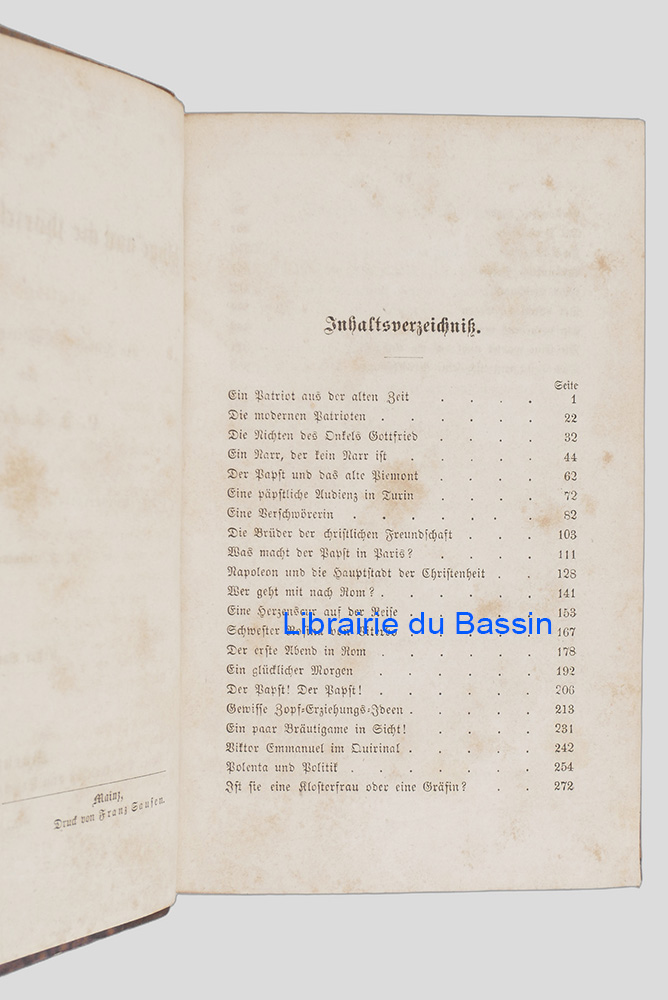 Mainz,
Druck von Franz Sausen.
Inhaltsverzeichniß.
Seite
Ein Patriot aus der alten Zeit . . . . 1
Die modernen Patrioten . . . . . . 22
Die Nichten des Onkels Gottfried . . . . 32
Ein Narr, der kein Narr ist . . . . . 44
Der Papst und das alte Piemont . . . . 62
Eine päpstliche Audienz in Turin . . . . 72
Eine Verschwörerin . . . . . . . 82
Die Brüder der christlichen Freundschaft . . . 103
Was macht der Papst in Paris? . . . . 111
Napoleon und die Hauptstadt der Christenheit . . 128
Wer geht mit nach Rom? . . . . . 141
Eine Herzenscur auf der Reise . . . . . 153
Schwester Rosina von Viterbo . . . . . 167
Librairie du Bassin
Der erste Abend in Rom . . . . . 178
Ein glücklicher Morgen . . . . . . 192
Der Papst! Der Papst! . . . . . . 206
Gewisse Zopf-Erziehungs-Ideen . . . . . 213
Ein paar Bräutigame in Sicht! . . . . 231
Viktor Emmanuel im Quirinal . . . . . 242
Polenta und Politik . . . . . . . 254
Ist sie eine Klosterfrau oder eine Gräfin? . . 272